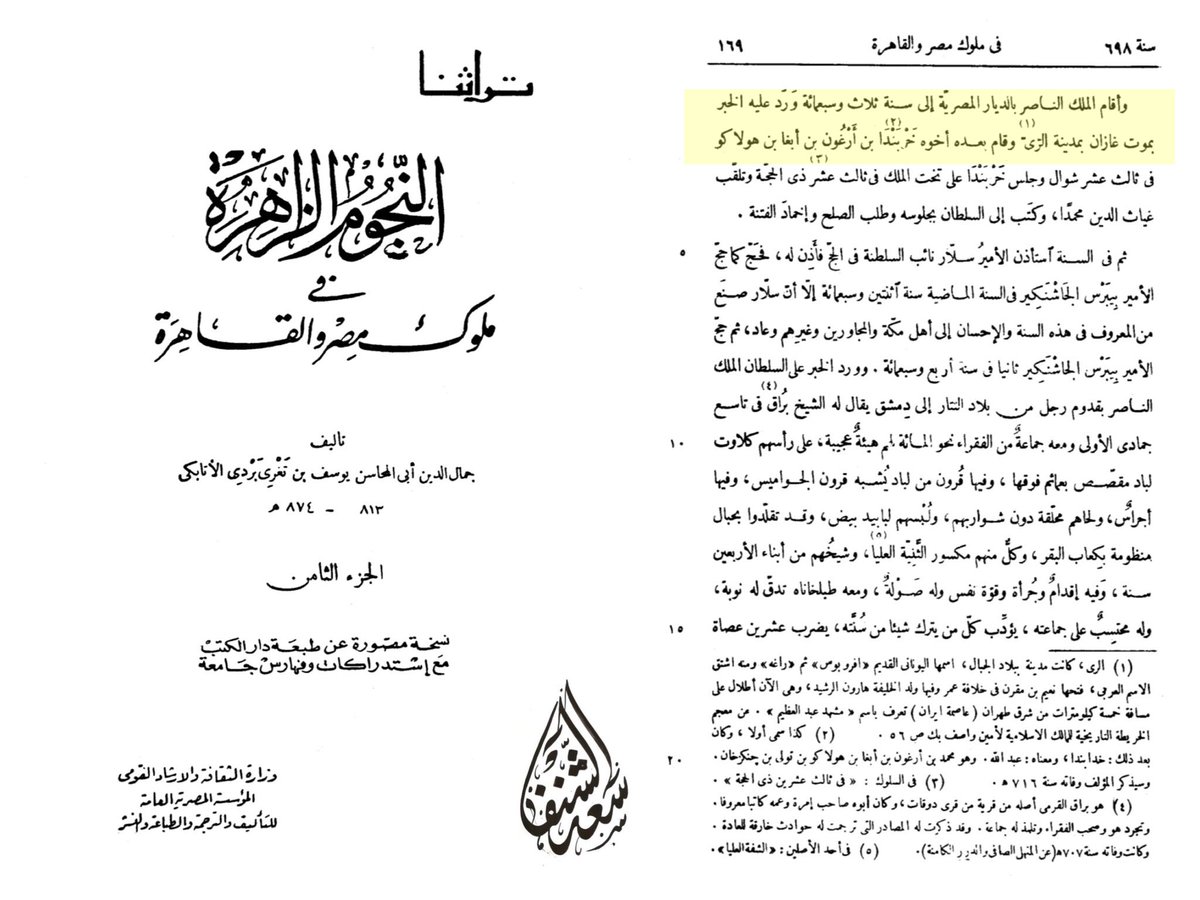 تراثنا
النُّجُومُ الزاهِرَة
في
ملوك مِصْر والقاهِرَة
تأليف
جمال الدين أبي المحاسن يوسف بن تَغْرِى بَرْدِى الأتابكى
٨١٣ – ٨٧٤ هـ
الجزء الثامن
نسخة مصورة عن طبعة دار الكتب
مع استدراكات وفهارس جامعة
وزارة الثقافة والارشاد القومى
المؤسسة المصرية العامة
للتأليف والترجمة والطباعة والنشر
سنة ٦٩٨ فى ملوك مصر والقاهرة ١٦٩
وأقام الملك الناصر بالديار المصريّة إلى سنة ثلاث وسبعمائة وَرَد عليه الخبر
بموت غازان بمدينة الرّىّ (١) وقام بعده أخوه خَرْبَنْدَا (٢) بن أَرْغُون بن أبغا بن هولاكو
فى ثالث عشر شوال وجلس خَرْبَنْدَا على تخت الملك فى ثالث عشر (٣) ذى الحجّة وتلقّب
غياث الدين محمدًا، وكتَب إلى السلطان بجلوسه وطلب الصلح وإخماد الفتنة .
٥ ثم فى السنة استأذن الأميرُ سلّار نائب السلطنة فى الحجّ فأذِن له ، فحجّ كما حجّ
الأمير بِيبَرْس الجَاشْنَكِير فى السنة الماضية سنة اثنتين وسبعمائة إلّا أنّ سلّار صنَع
من المعروف فى هذه السنة والإحسان إلى أهل مكّة والمجاورين وغيرهم وعاد، ثم حجّ
الأمير بِيبَرْس الجاشْنَكِير ثانيا فى سنة أربع وسبعمائة . وورد الخبر على السلطان الملك
الناصر بقدوم رجل من بلاد التتار إلى دِمشق يقال له الشيخ بُرَاق (٤) فى تاسع
١٠ جمادى الأولى ومعه جماعةٌ من الفقراء نحو المائة لهم هيئةٌ عجيبة، على رأسهم كلاوت
لباد مقصّص بعمائم فوقها ، وفيها قُرون من لباد يُشبه قرون الجواميس، وفيها
أجراسٌ، ولحاهم محلّقة دون شواربهم، ولُبْسهم لبابيد بيض، وقد تقلّدوا بحبال
منظومة بكعاب البقر، وكلٌّ منهم مكسور الثَّنِيّة العليا (٥)، وشيخُهم من أبناء الأربعين
سنة ، وفيه إقدامٌ وجُرأة وقوّة نفس وله صَوْلةٌ ، ومعه طبلخاناه تدقّ له نوبة،
١٥ وله محتسِبٌ على جماعته ، يؤدِّب كلّ من يترك شيئا من سُنَّته، يضرب عشرين عصاة
(١) الرى، كانت مدينة ببلاد الجبال ، اسمها اليونانى القديم «افروبوس» ثم «راغه» ومنه اشتق
الاسم العربى، فتحها نعيم بن مقرن فى خلافة عمر وفيها ولد الخليفة هارون الرشيد، وهى الآن أطلال على
مسافة خمسة كيلومترات من شرق طهران (عاصمة ايران) تعرف باسم «مشهد عبد العظيم» . من معجم
الخريطة التاريخية للمالك الاسلامية لأمين واصف بك ص ٥٦ . (٢) كذا سمى أولا ، وكان
٢٠ بعد ذلك : خدابندا ، ومعناه : عبد الله . وهو محمد بن أرغون بن أبغا بن هولاكو بن تولى بن چنكزخان.
وسيذكر المؤلف وفاته سنة ٧١٦ هـ . (٣) فى السلوك : «فى ثالث عشرين ذى الحجة» .
(٤) هو براق القرمى أصله من قرية من قرى دوقات ، وكان أبوه صاحب إمرة وعمه كاتبا معروفا.
وتجرد هو وصحب الفقراء وتلمذ له جماعة . وقد ذكرت له المصادر التى ترجمت له حوادث خارقة للعادة .
وكانت وفاته سنة ٧٠٧هـ (عن المنهل الصافى والدرر الكامنة). (٥) فى أحد الأصلين : «الشفة العليا».